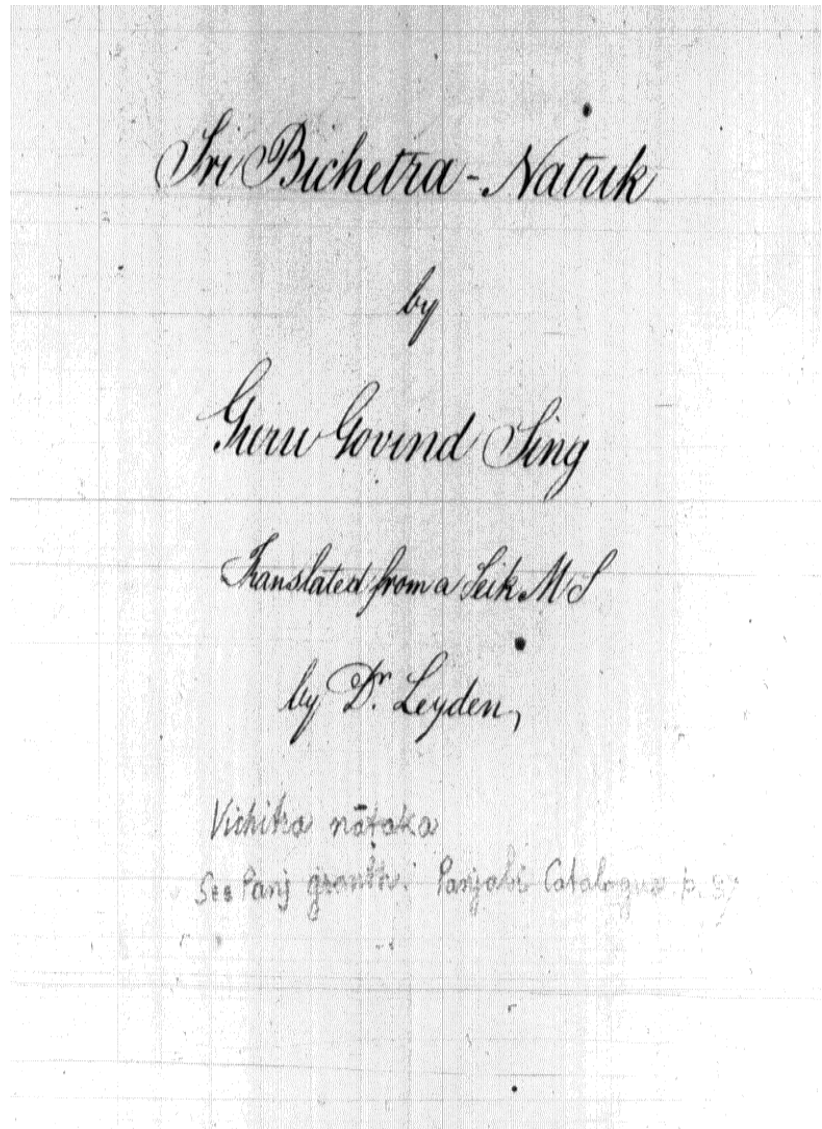 Sri Bichetra-Natuk
by
Guru Govind Sing
Translated from a Seik MS
by Dr. Leyden,
Vichitra nātaka
See Panj granth. Panjabi Catalogue p.